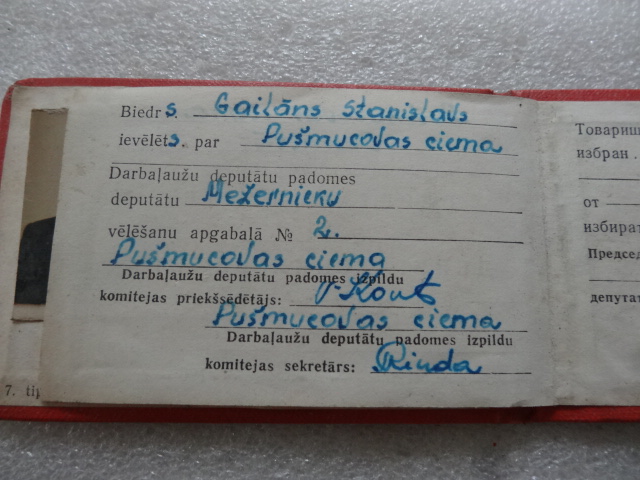 Biedrs. Gailāns Staņislavs
ievēlēts. par Pušmucovas ciema
Darbaļaužu deputātu padomes
deputātu Mežernieku
vēlēšanu apgabalā № 2.
Pušmucovas ciema
Darbaļaužu deputātu padomes izpildu
komitejas priekšsēdētājs:
Pušmucovas ciema
Darbaļaužu deputātu padomes izpildu
komitejas sekretārs: Rinda
7. tip
Товарищ
избран
от
избират
Председ
депутат